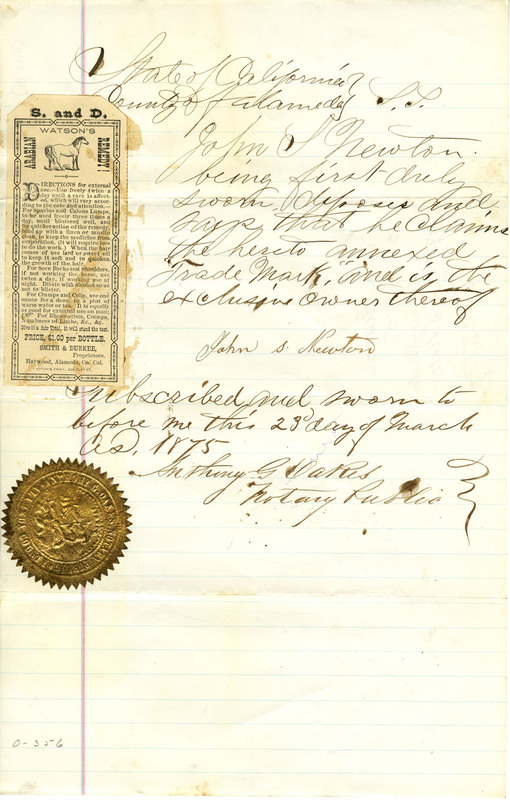 State of California
County of Alameda S.S.
John S Newton
being first duly
sworn deposes and
says that he claims
the hereto annexed
Trade Mark, and is the
exclusive owner thereof
John S. Newton
Subscribed and sworn to
before me this 23d day of March
AD, 1875
Anthony G Oakes
Notary Public
S. and D.
WATSON'S
ARABIAN
REMEDY!
DIRECTIONS for external
use.—Use freely twice a
day until a cure is affect-
ed, which will vary accord-
ing to the case and attention.—
For Spavins and Calous Lumps,
to be used freely three times a
day, until blistered well, and
for quicker action of the remedy,
bind up with a woolen or
cloth, to keep the medicine from
evaporation. (it will require less
to do the work.) When the hair
comes off use lard or sweet oil
to keep it soft and to quicken
the growth of the hair.
For Sore Backs and shoulders,
if not working the horse, use
twice a day, if working once at
night. Dilute with alcohol so as
not to blister.
For Cramps and Colic, use one
ounce for a dose, in a pint of
warm water or tea. It is equally
as good for external use on man;
For Rheumatism, Cramps,
Numbness of Limbs, &c., &c.
Give it a fair Trial, it will stand the test.
PRICE, $1.00 per BOTTLE.
SMITH & DURKEE,
Proprietors.
Haywood, Alameda, Co. Cal.
0-356